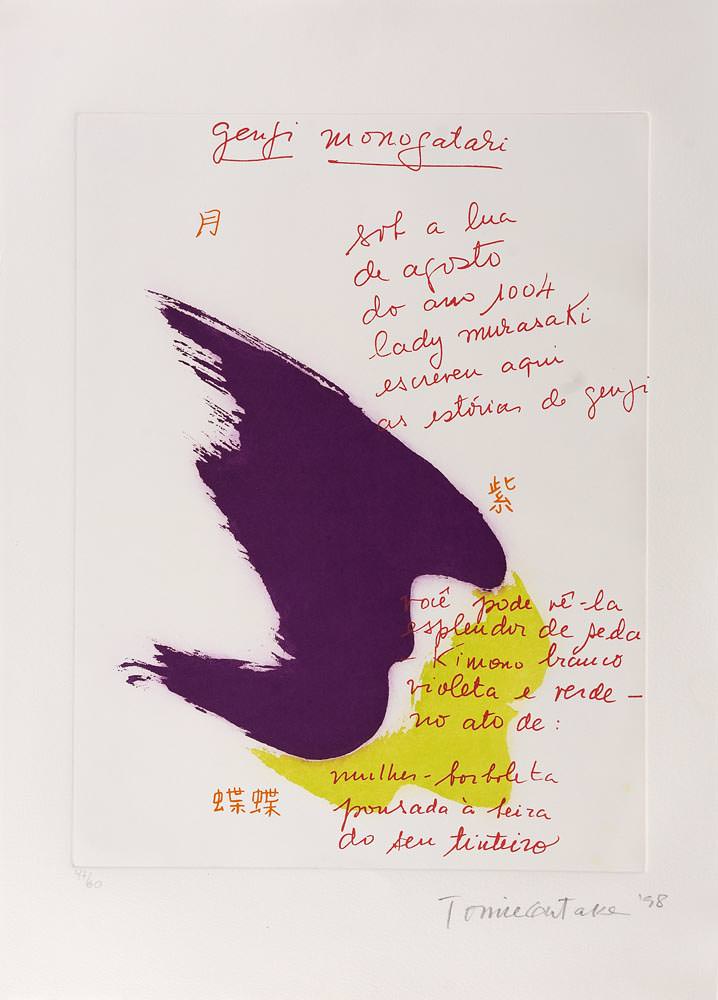 genji monogatari
月
sob a lua
de agosto
do ano 1004
lady murasaki
escreveu aqui
as estórias de genji
紫
você pode vê-la
esplendor de seda
- Kimono branco
violeta e verde -
no ato de:
mulher-borboleta
pousada à beira
do seu tinteiro
蝶蝶
47/60
Tomie Ohtake '98